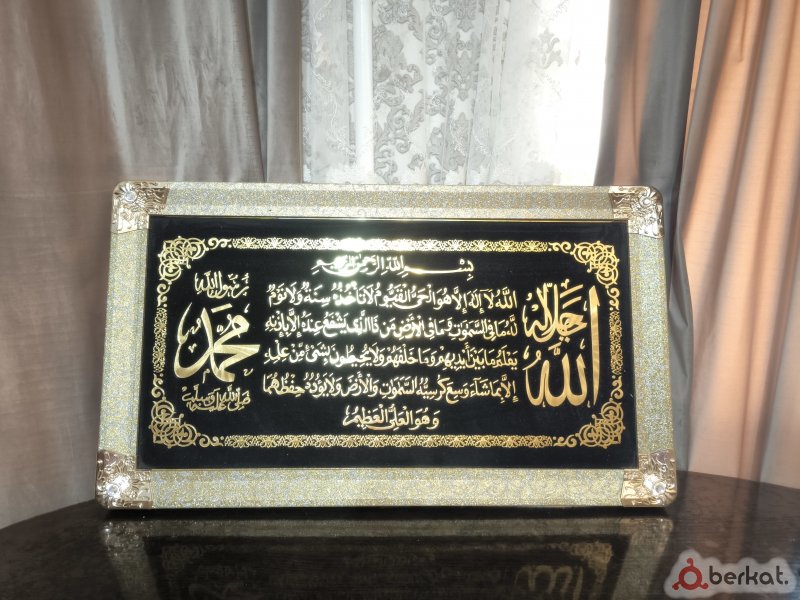 بسم الله الرحمن الرحيم
الله لا إله إلا هو الحي القيوم لا تأخذه سنة ولا نوم
له ما في السموات وما في الأرض من ذا الذي يشفع عنده إلا بإذنه
يعلم ما بين أيديهم وما خلفهم ولا يحيطون بشيء من علمه
إلا بما شاء وسع كرسيه السموات والأرض ولا يؤده حفظهما
وهو العلي العظيم
الله
جل جلاله
محمد
رسول الله
صلى الله عليه وسلم
berkat.